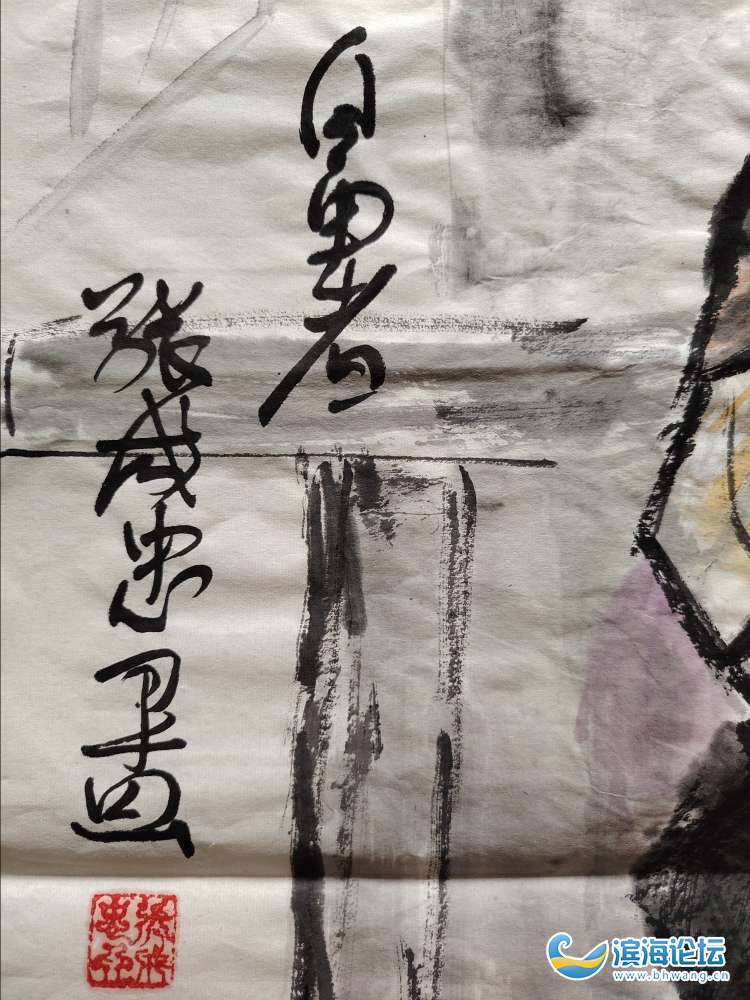 自者
张成忠畫
张成忠印
滨海论坛
www.bhwang.cn